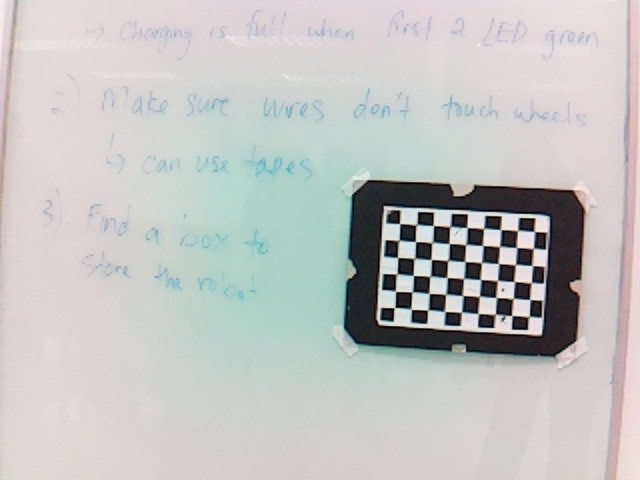 ↳ Charging is full when first 2 LED green
2) Make sure wires don't touch wheels
↳ can use tapes
3) Find a box to
store the robot